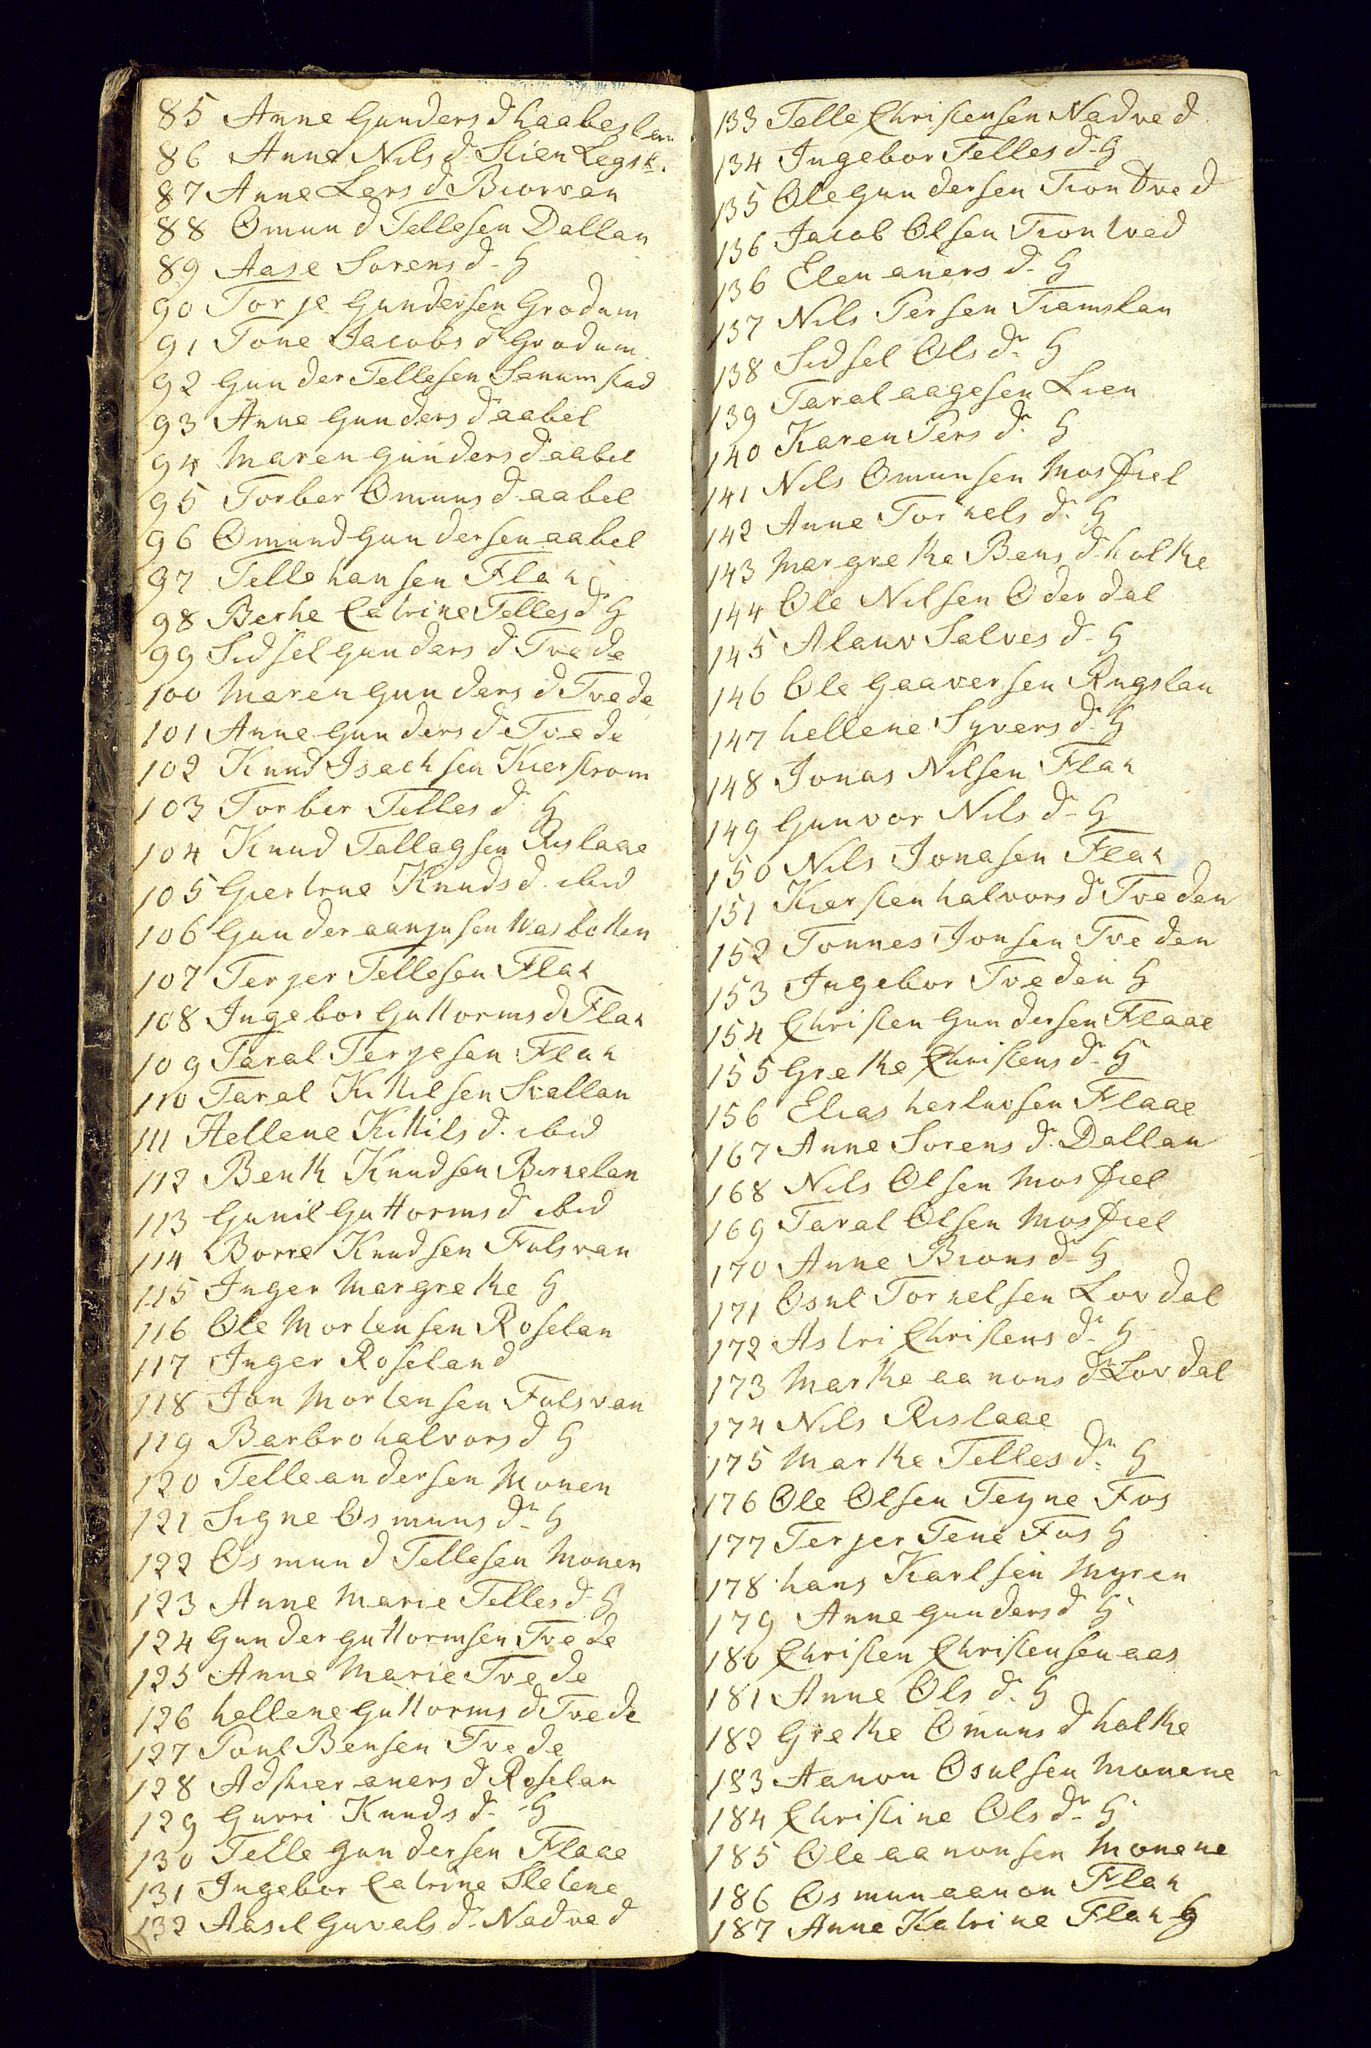 85 Anne Gunders d haabeslan
86 Anne Nils d. Skien Legsk.
87 Anne Lars d Biorvan
88 Omund Tellesen Dallan
89 Aase Sorens d- H
90 Torje Gundersen Grodum
91 Tone Jacobs d Grodum
92 Gunder Tellesen Senumstad
93 Anne Gunders d aabel
94 Maren gunders d aabel
95 Torber Omuns d aabel
96 Omund gundersen aabel
97 Telle hansen Flak
98 Berthe Catrine Telles d H
99 Sidsel gunders d Tvede
100 Maren gunders d Tvede
101 Anne gunders d Tvede
102 Knud Isachsen Kierstrom
103 Torber Telles d. H
104 Knud Tellagsen Rislaae
105 Giertrue Knuds d. ibid
106 Gunder aanjusen Wasbotten
107 Terjer Tellesen Flak
108 Ingebor Guttorms d Flak
109 Taral Terjesen Flak
110 Taral Kittilsen Scallan
111 Hellene Kittils d. ibid
112 Benth Knudsen Birkelan
113 Gunil Guttorms d ibid
114 Borre Knudsen Fulsvan
115 Inger Margrethe H
116 Ole Mortensen Roselan
117 Inger Roseland
118 Jon Mortensen Fulsvan
119 Barbro halvors d. H
120 Telle andersen Monen
121 Signe Osmuns dr H
122 Osmund Tellesen Monen
123 Anne Marie Telles d- H
124 Gunder guttormsen Tvede
125 Anne Marie Tvede
126 hellene guttorms d Tvede
127 Poul Bensen Tvede
128 Adskier aners d Roselan
129 Gurri Knuds d- H
130 Telle gundersen Flaae
131 Ingebor Catrine Sletene
132 Aasil guvals d. Nadved
133 Telle Christensen Nadved
134 Ingebor Telles d- H
135 Ole gundersen Tiontved
136 Jacob Olsen Tiontved
136 Elen aners d- H
137 Nils Persen Tiamslan
138 Sidsel Ols dr H
139 Taral aagesen Lien
140 Karen Pers dr H
141 Nils Omunsen Mosfiel
142 Anne Torkels dr H
143 Margrethe Bens d holthe
144 Ole Nilsen Oderdal
145 Alauv Salves d- H
146 Ole Gaaversen Rugslan
147 hellene Syvers d- H
148 Jonas Nilsen Flak
149 Gunvor Nils d- H
150 Nils Jonasen Flak
151 Kiersten halvors d Tveden
152 Tonnes Jonsen Tveden
153 Ingebor Tveden H
154 Christen gundersen Flaae
155 Grethe Christens d- H
156 Elias herlufsen Flaae
167 Anne Sorens d. Dallan
168 Nils Olsen Mosfiel
169 Taral Olsen Mosfiel
170 Anne Bions d- H
171 Osul Torkelsen Lovdal
172 Astri Christens d- H
173 Marthe aanons dr Lovdal
174 Nils Rislaae
175 Marthe Telles dr H
176 Ole Olsen Teyne Fos
177 Terjer Tene Fos H
178 hans Karlsen Myren
179 Anne gunders d H
180 Christen Christensen aas
181 Anne Ols d- H
182 Grethe Omuns d holthe
183 Aanon Osulsen Monene
184 Christine Ols dr H
185 Ole aanonsen Monene
186 Osmun aanon Flak
187 Anne Katrine Flak H